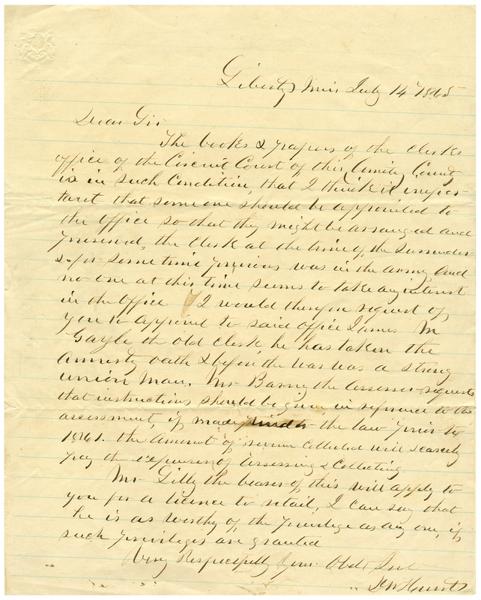 Liberty Miss July 14 1865
Dear Sir
The books & papers of the Clerks
office of the Circuit Court of this (Amite) County
is in such Condition, that I think it impor-
tant that some one should be appointed to
the office so that they might be arranged and
preserved, the Clerk at the time of the Surrender
& for some time previous was in the army and
no one at this time seems to take an interest
in the office I would therefore request of
you to appoint to said office James M
Gayle the old clerk, he has taken the
amnesty oath & before the war was a strong
union man, Mr Barny the Assessor requests
that instructions should be given in reference to the
assessment, if made under the law prior to
1861. the amount of revenue Collected will scarcely
pay the expenses of assessing & Collecting
Mr Gilly the bearer of this will apply to
you for a licence to retail, I can say that
he is as worthy of the privilege as any one, if
such privileges are granted
Very Respectfully Your Obdt Svt
Hurst